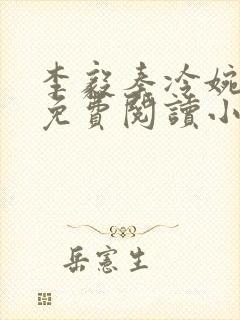 李毅秦冷婉
免費閱讀小
岳憲生